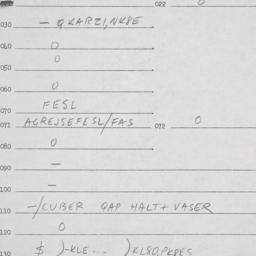 022 0
030 - QKARZI, NK8E
040 0
050 0
060 0
070 FESL
071 AGREJSEFESL/FAS 072 0
080 0
090 -
100 -
110 -/CUBER GAP HALT+ VASER
120 0
130 $ )-KLE... )KL80,PK8ES